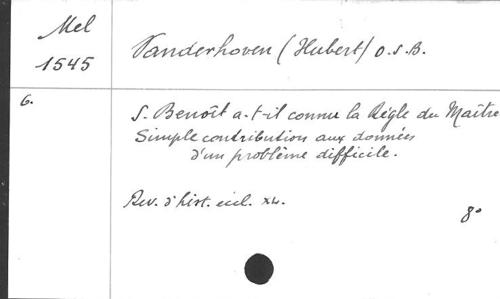 Mel
1545
Vanderhoven (Hubert) O.S.B.
6.
S. Benoît a-t-il connu la Règle du Maître
Simple contribution aux données
d'un problème difficile.
Rev. d'hist. eccl. XL.
8°